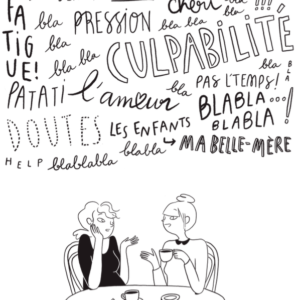 FATIGUE!
bla
PRESSION
bla bla bla
chéri
!!!
bla
bla bla
CULPABILITÉ
PATATI
l'amour
bla
PAS L'TEMPS!
BLA
BLABLA...!
BLABLA!
DOUTES
LES ENFANTS
HELP
blablabla
blabla
MA BELLE-MÈRE